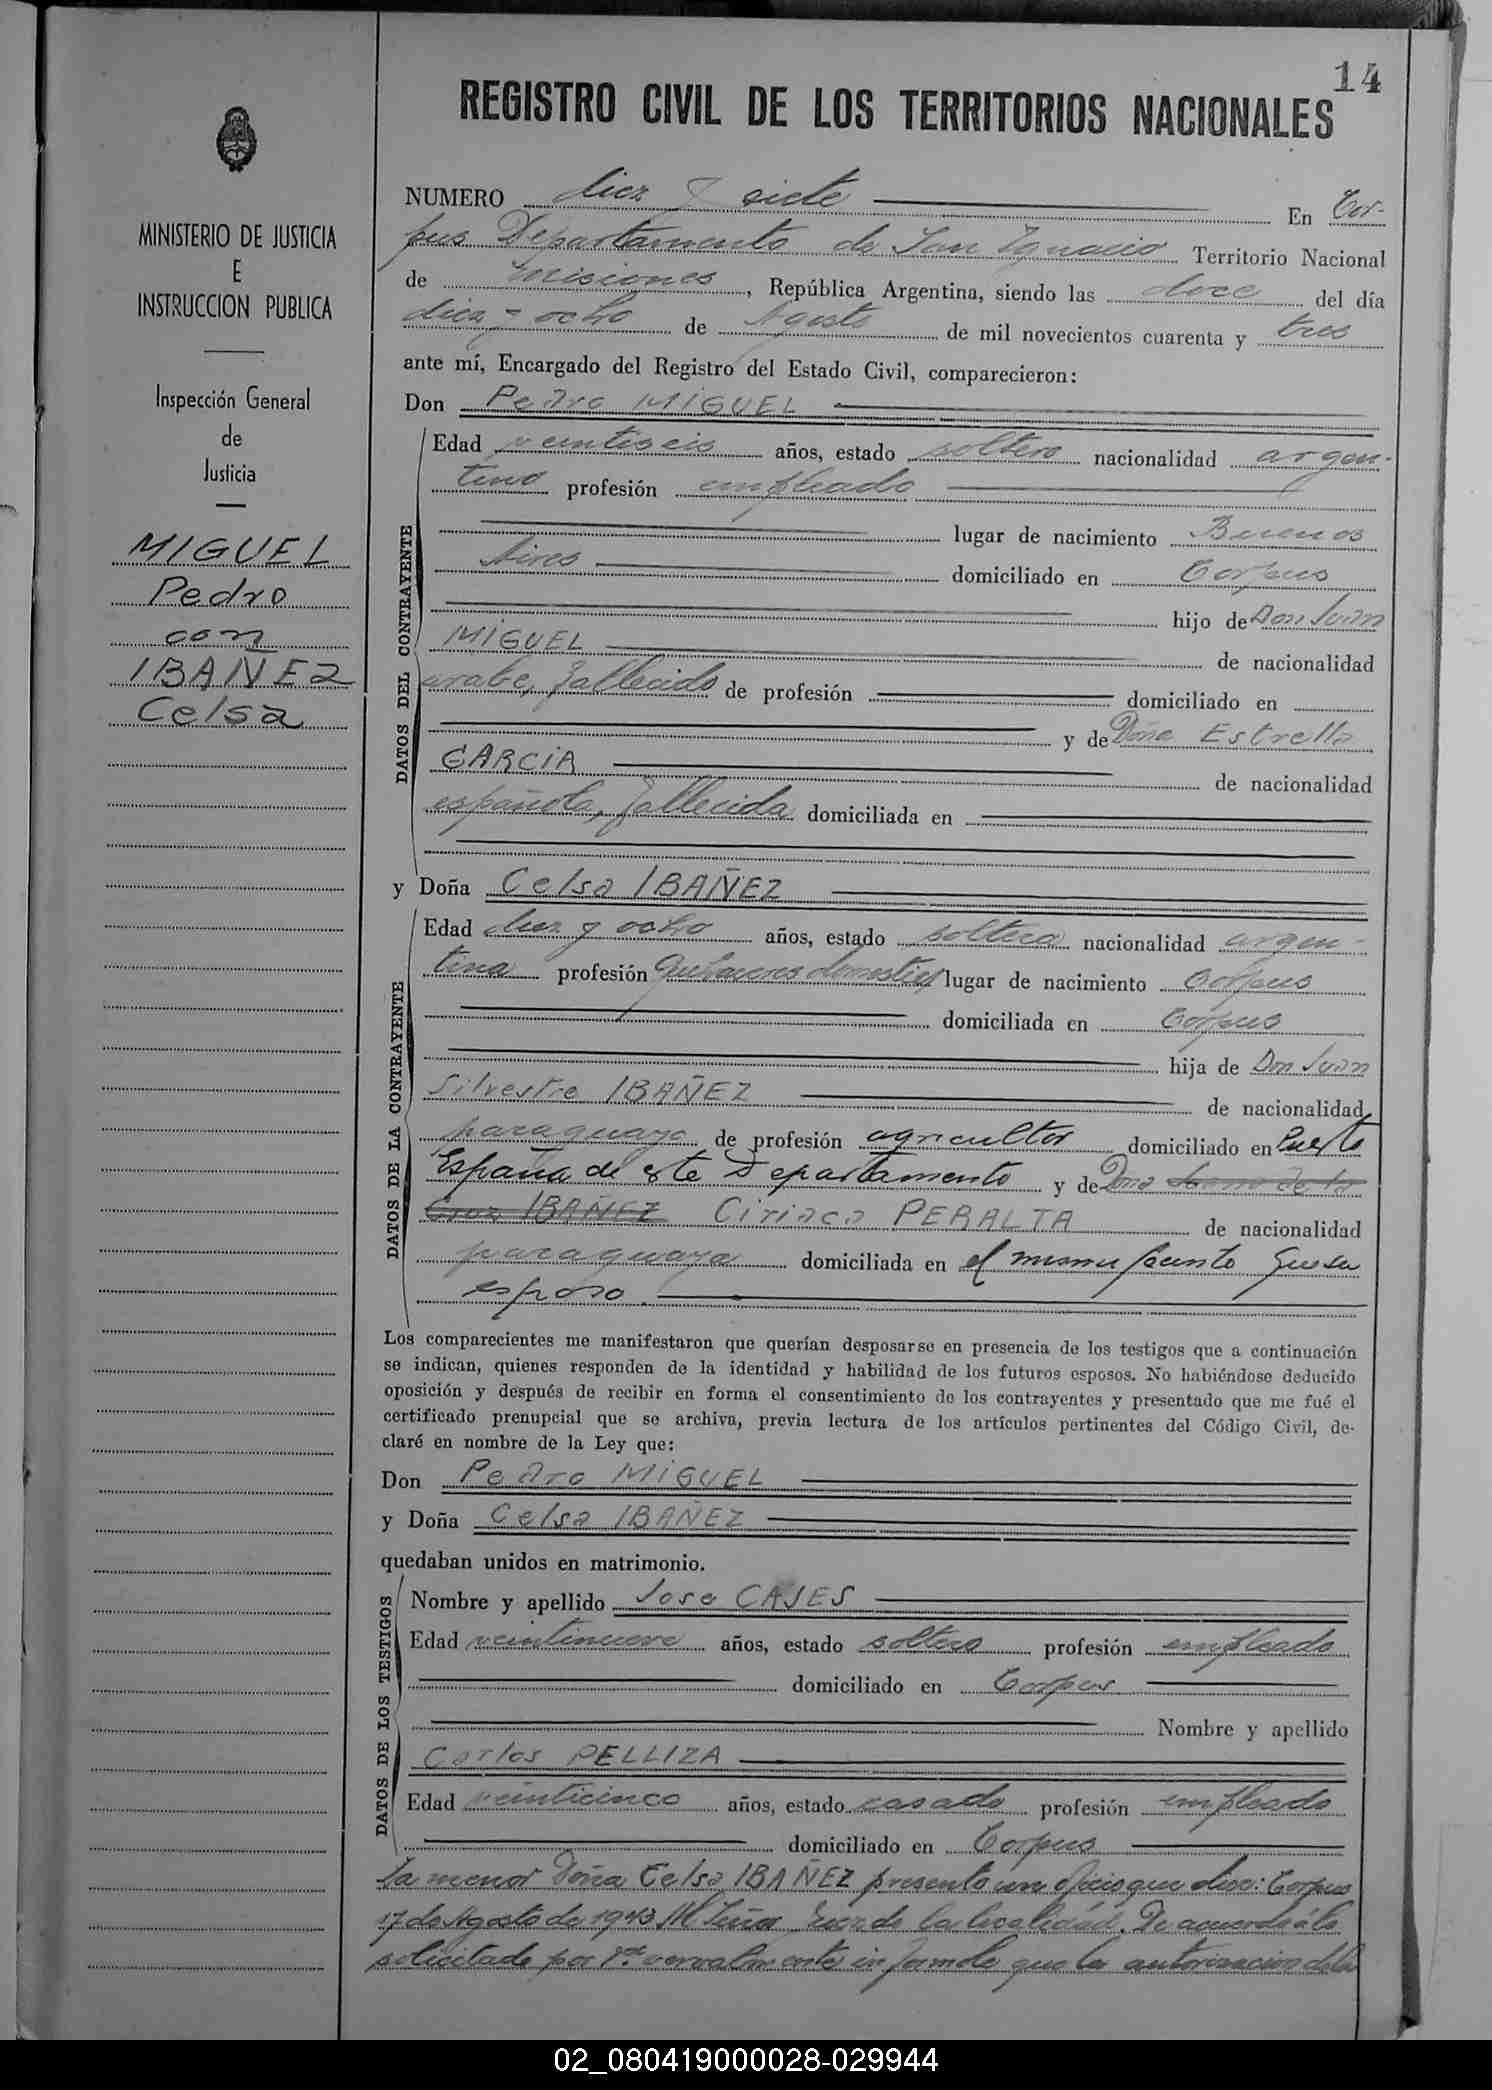 14
REGISTRO CIVIL DE LOS TERRITORIOS NACIONALES
MINISTERIO DE JUSTICIA
E
INSTRUCCION PUBLICA
Inspección General
de
Justicia
MIGUEL
Pedro
con
IBAÑEZ
Celsa
NUMERO diez y siete En Cor-
pus Departamento de San Ignacio Territorio Nacional
de Misiones, República Argentina, siendo las doce del día
diez y ocho de Agosto de mil novecientos cuarenta y tres
ante mí, Encargado del Registro del Estado Civil, comparecieron:
Don Pedro MIGUEL
DATOS DEL CONTRAYENTE
Edad veintiseis años, estado soltero nacionalidad argen-
tino profesión empleado
lugar de nacimiento Buenos
Aires domiciliado en Corpus
hijo de Don Juan
MIGUEL de nacionalidad
arabe, fallecido de profesión domiciliado en
y de Doña Estrella
GARCIA de nacionalidad
española, fallecida domiciliada en
y Doña Celsa IBAÑEZ
DATOS DE LA CONTRAYENTE
Edad diez y ocho años, estado soltera nacionalidad argen-
tina profesión Quehaceres domesticos lugar de nacimiento Corpus
domiciliada en Corpus
hija de Don Juan
Silvestre IBAÑEZ de nacionalidad
paraguayo de profesión agricultor domiciliado en Puerto
España de este Departamento y de Doña de la
Cruz IBAÑEZ Ciriaca PERALTA de nacionalidad
paraguaya domiciliada en el mismo punto que su
esposo.
Los comparecientes me manifestaron que querían desposarse en presencia de los testigos que a continuación
se indican, quienes responden de la identidad y habilidad de los futuros esposos. No habiéndose deducido
oposición y después de recibir en forma el consentimiento de los contrayentes y presentado que me fué el
certificado prenupcial que se archiva, previa lectura de los artículos pertinentes del Código Civil, de-
claré en nombre de la Ley que:
Don Pedro MIGUEL
y Doña Celsa IBAÑEZ
quedaban unidos en matrimonio.
DATOS DE LOS TESTIGOS
Nombre y apellido Jose CAJES
Edad veintinueve años, estado soltero profesión empleado
domiciliado en Corpus
Nombre y apellido
Carlos PELLIZA
Edad veinticinco años, estado casado profesión empleado
domiciliado en Corpus
La menor Doña Celsa IBAÑEZ presento un oficio que dice: Corpus
17 de Agosto de 1943 Al Señor Juez de la localidad. De acuerdo á lo
solicitado por Vd. verbalmente informole que la autorizacion de la
02_080419000028-029944